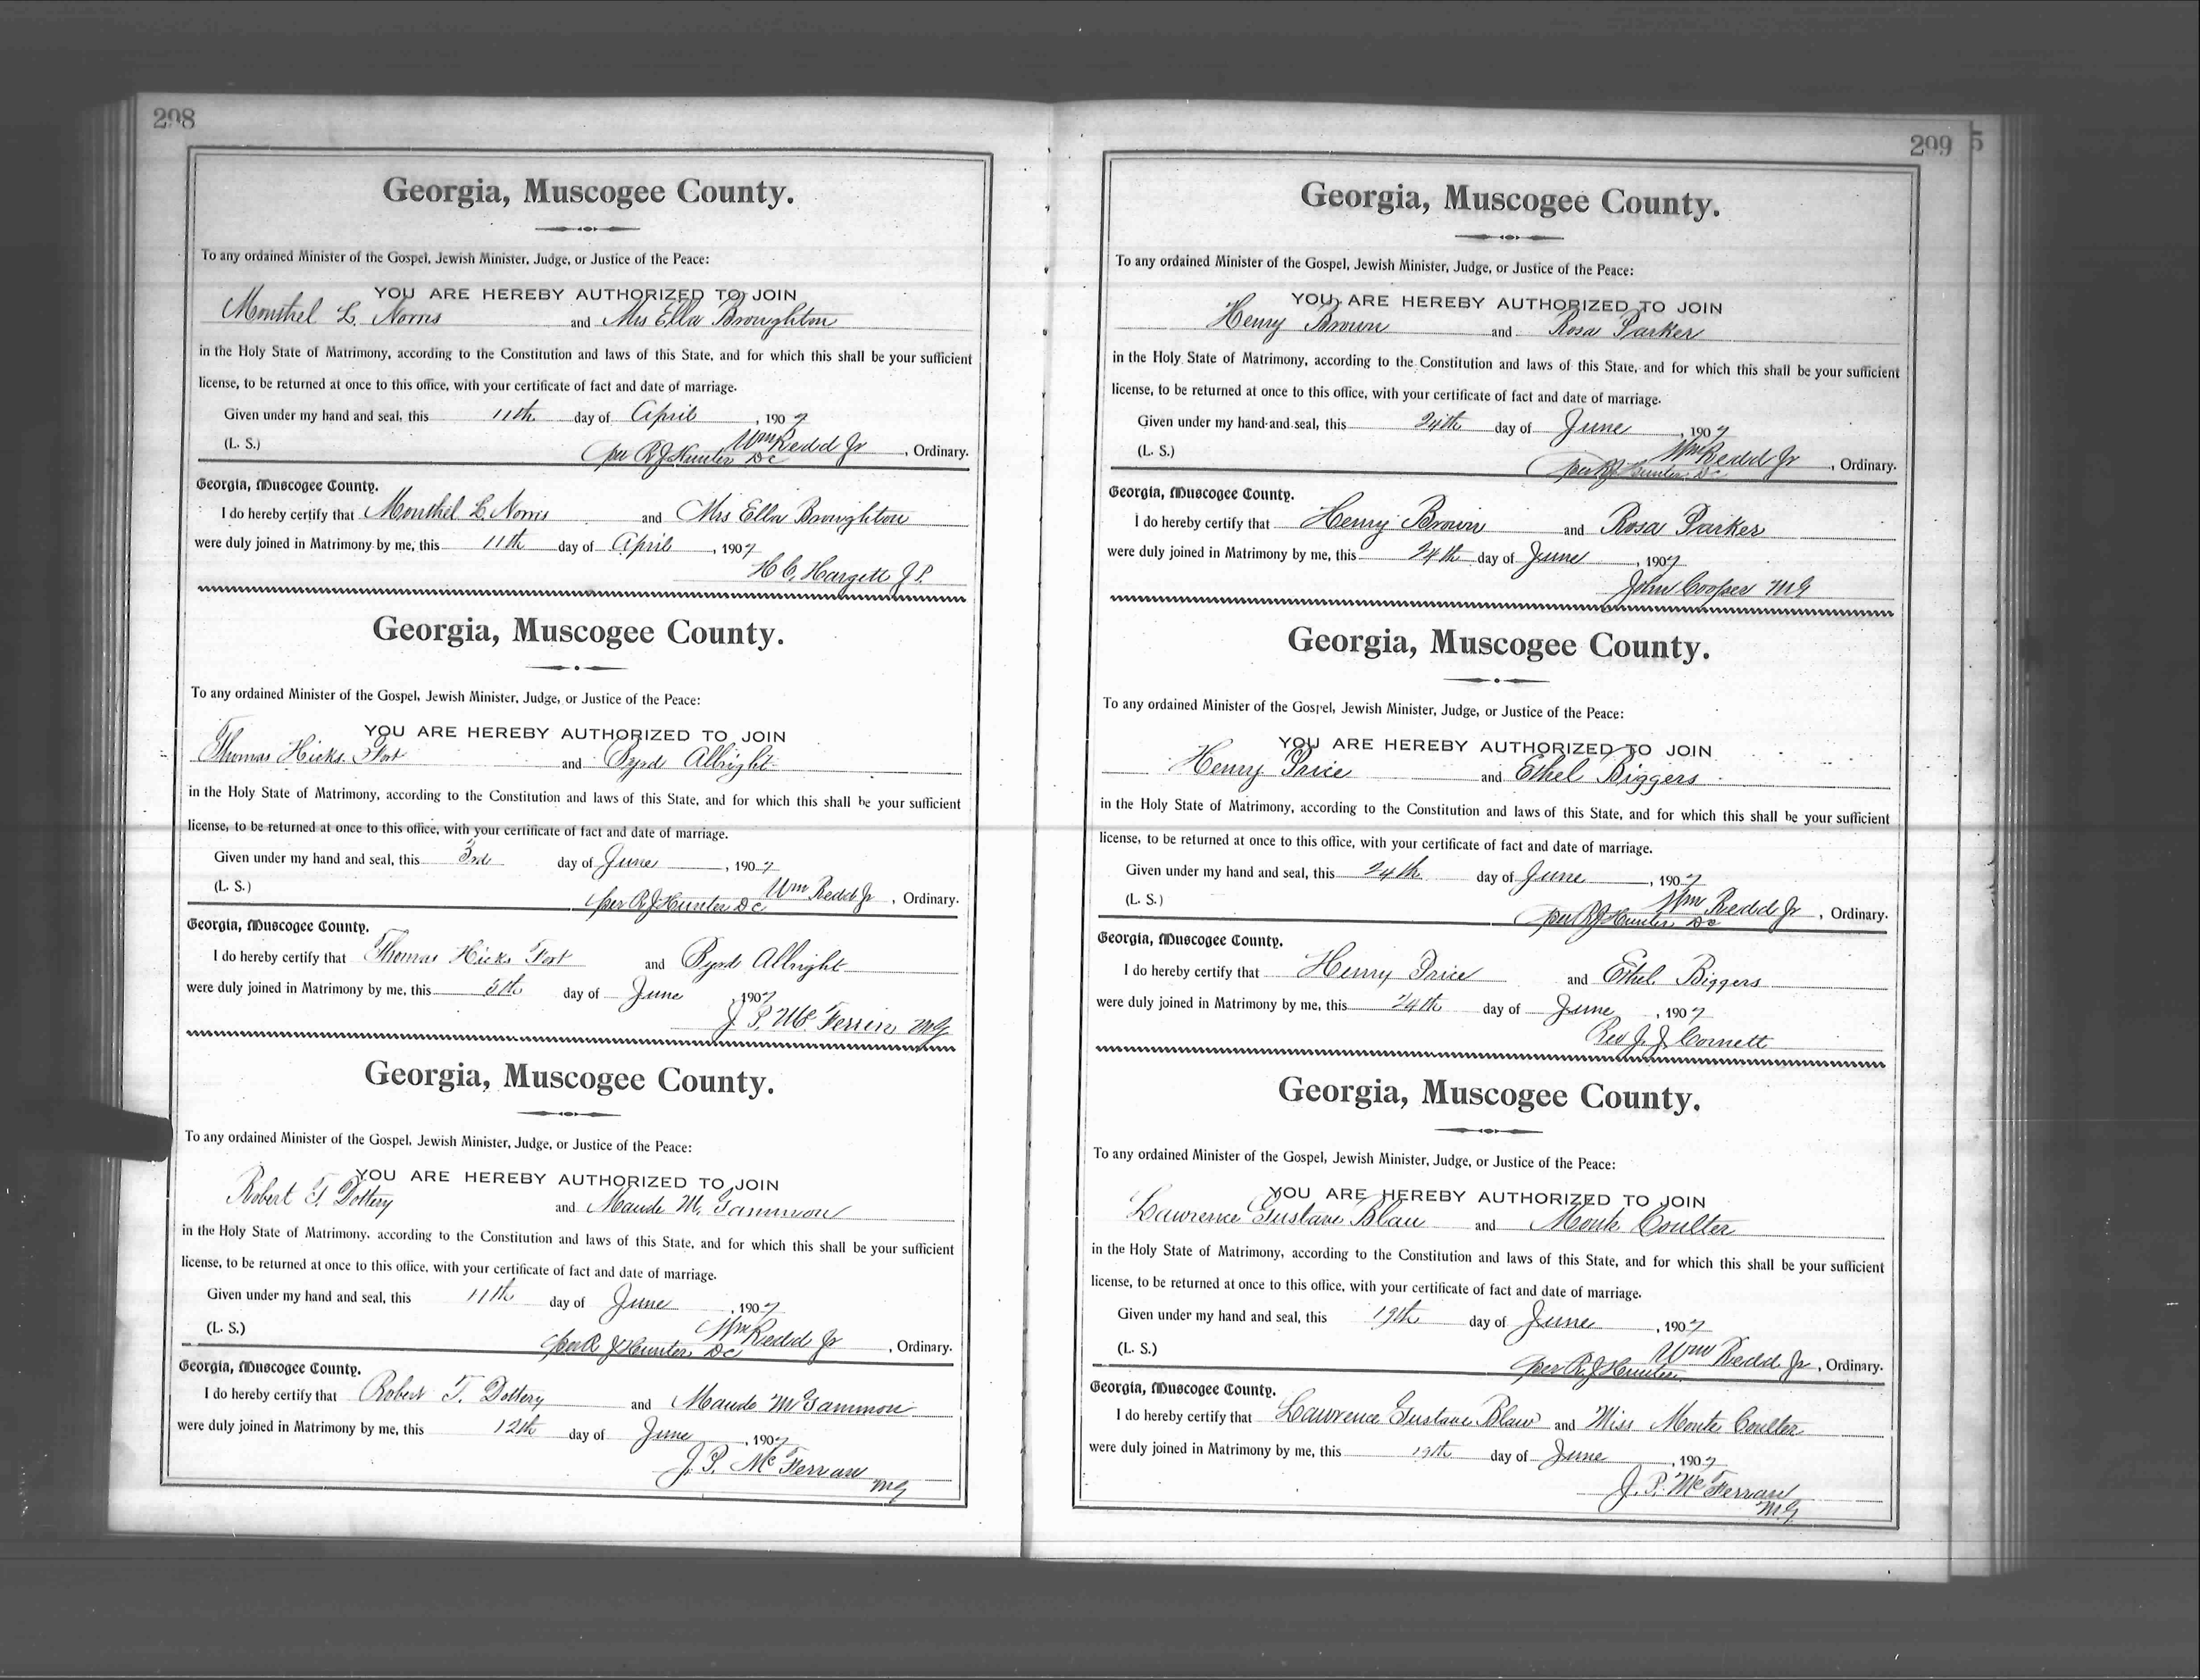 298
Georgia, Muscogee County.
To any ordained Minister of the Gospel, Jewish Minister, Judge, or Justice of the Peace:
YOU ARE HEREBY AUTHORIZED TO JOIN
Monthel L. Norris and Mrs Ella Broughton
in the Holy State of Matrimony, according to the Constitution and laws of this State, and for which this shall be your sufficient
license, to be returned at once to this office, with your certificate of fact and date of marriage.
Given under my hand and seal, this 11th day of April, 1907
Wm Redd Jr
(L. S.) per R J Hunter DC, Ordinary.
Georgia, Muscogee County.
I do hereby certify that Monthel L. Norris and Mrs Ella Broughton
were duly joined in Matrimony by me, this 11th day of April, 1907
H C. Hargett J P.
Georgia, Muscogee County.
To any ordained Minister of the Gospel, Jewish Minister, Judge, or Justice of the Peace:
YOU ARE HEREBY AUTHORIZED TO JOIN
Thomas Hicks Fort and Byrd Albright
in the Holy State of Matrimony, according to the Constitution and laws of this State, and for which this shall be your sufficient
license, to be returned at once to this office, with your certificate of fact and date of marriage.
Given under my hand and seal, this 3rd day of June, 1907
(L. S.) per R J Hunter DC Wm Redd Jr, Ordinary.
Georgia, Muscogee County.
I do hereby certify that Thomas Hicks Fort and Byrd Albright
were duly joined in Matrimony by me, this 5th day of June, 1907
J. P. Mc Ferrin MG
Georgia, Muscogee County.
To any ordained Minister of the Gospel, Jewish Minister, Judge, or Justice of the Peace:
YOU ARE HEREBY AUTHORIZED TO JOIN
Robert T. Dottery and Maude Mc Gammon
in the Holy State of Matrimony, according to the Constitution and laws of this State, and for which this shall be your sufficient
license, to be returned at once to this office, with your certificate of fact and date of marriage.
Given under my hand and seal, this 11th day of June, 1907
Wm Redd Jr
(L. S.) per R J Hunter DC, Ordinary.
Georgia, Muscogee County.
I do hereby certify that Robert T. Dottery and Maude Mc Gammon
were duly joined in Matrimony by me, this 12th day of June, 1907
J. P. Mc Ferran
MG
299 5
Georgia, Muscogee County.
To any ordained Minister of the Gospel, Jewish Minister, Judge, or Justice of the Peace:
YOU ARE HEREBY AUTHORIZED TO JOIN
Henry Brown and Rosa Parker
in the Holy State of Matrimony, according to the Constitution and laws of this State, and for which this shall be your sufficient
license, to be returned at once to this office, with your certificate of fact and date of marriage.
Given under my hand and seal, this 24th day of June, 1907
Wm Redd Jr
(L. S.) per R J Hunter DC, Ordinary.
Georgia, Muscogee County.
I do hereby certify that Henry Brown and Rosa Parker
were duly joined in Matrimony by me, this 24th day of June, 1907
John Cooper MG
Georgia, Muscogee County.
To any ordained Minister of the Gospel, Jewish Minister, Judge, or Justice of the Peace:
YOU ARE HEREBY AUTHORIZED TO JOIN
Henry Price and Ethel Biggers
in the Holy State of Matrimony, according to the Constitution and laws of this State, and for which this shall be your sufficient
license, to be returned at once to this office, with your certificate of fact and date of marriage.
Given under my hand and seal, this 24th day of June, 1907
Wm Redd Jr
(L. S.) per R J Hunter DC, Ordinary.
Georgia, Muscogee County.
I do hereby certify that Henry Price and Ethel Biggers
were duly joined in Matrimony by me, this 24th day of June, 1907
Rev J. J. Cornett
Georgia, Muscogee County.
To any ordained Minister of the Gospel, Jewish Minister, Judge, or Justice of the Peace:
YOU ARE HEREBY AUTHORIZED TO JOIN
Lawrence Gustave Blau and Monte Coulter
in the Holy State of Matrimony, according to the Constitution and laws of this State, and for which this shall be your sufficient
license, to be returned at once to this office, with your certificate of fact and date of marriage.
Given under my hand and seal, this 19th day of June, 1907
Wm Redd Jr
(L. S.) per R. J Hunter, Ordinary.
Georgia, Muscogee County.
I do hereby certify that Lawrence Gustave Blau and Miss Monte Coulter
were duly joined in Matrimony by me, this 19th day of June, 1907
J. P. Mc Ferran
M.G.